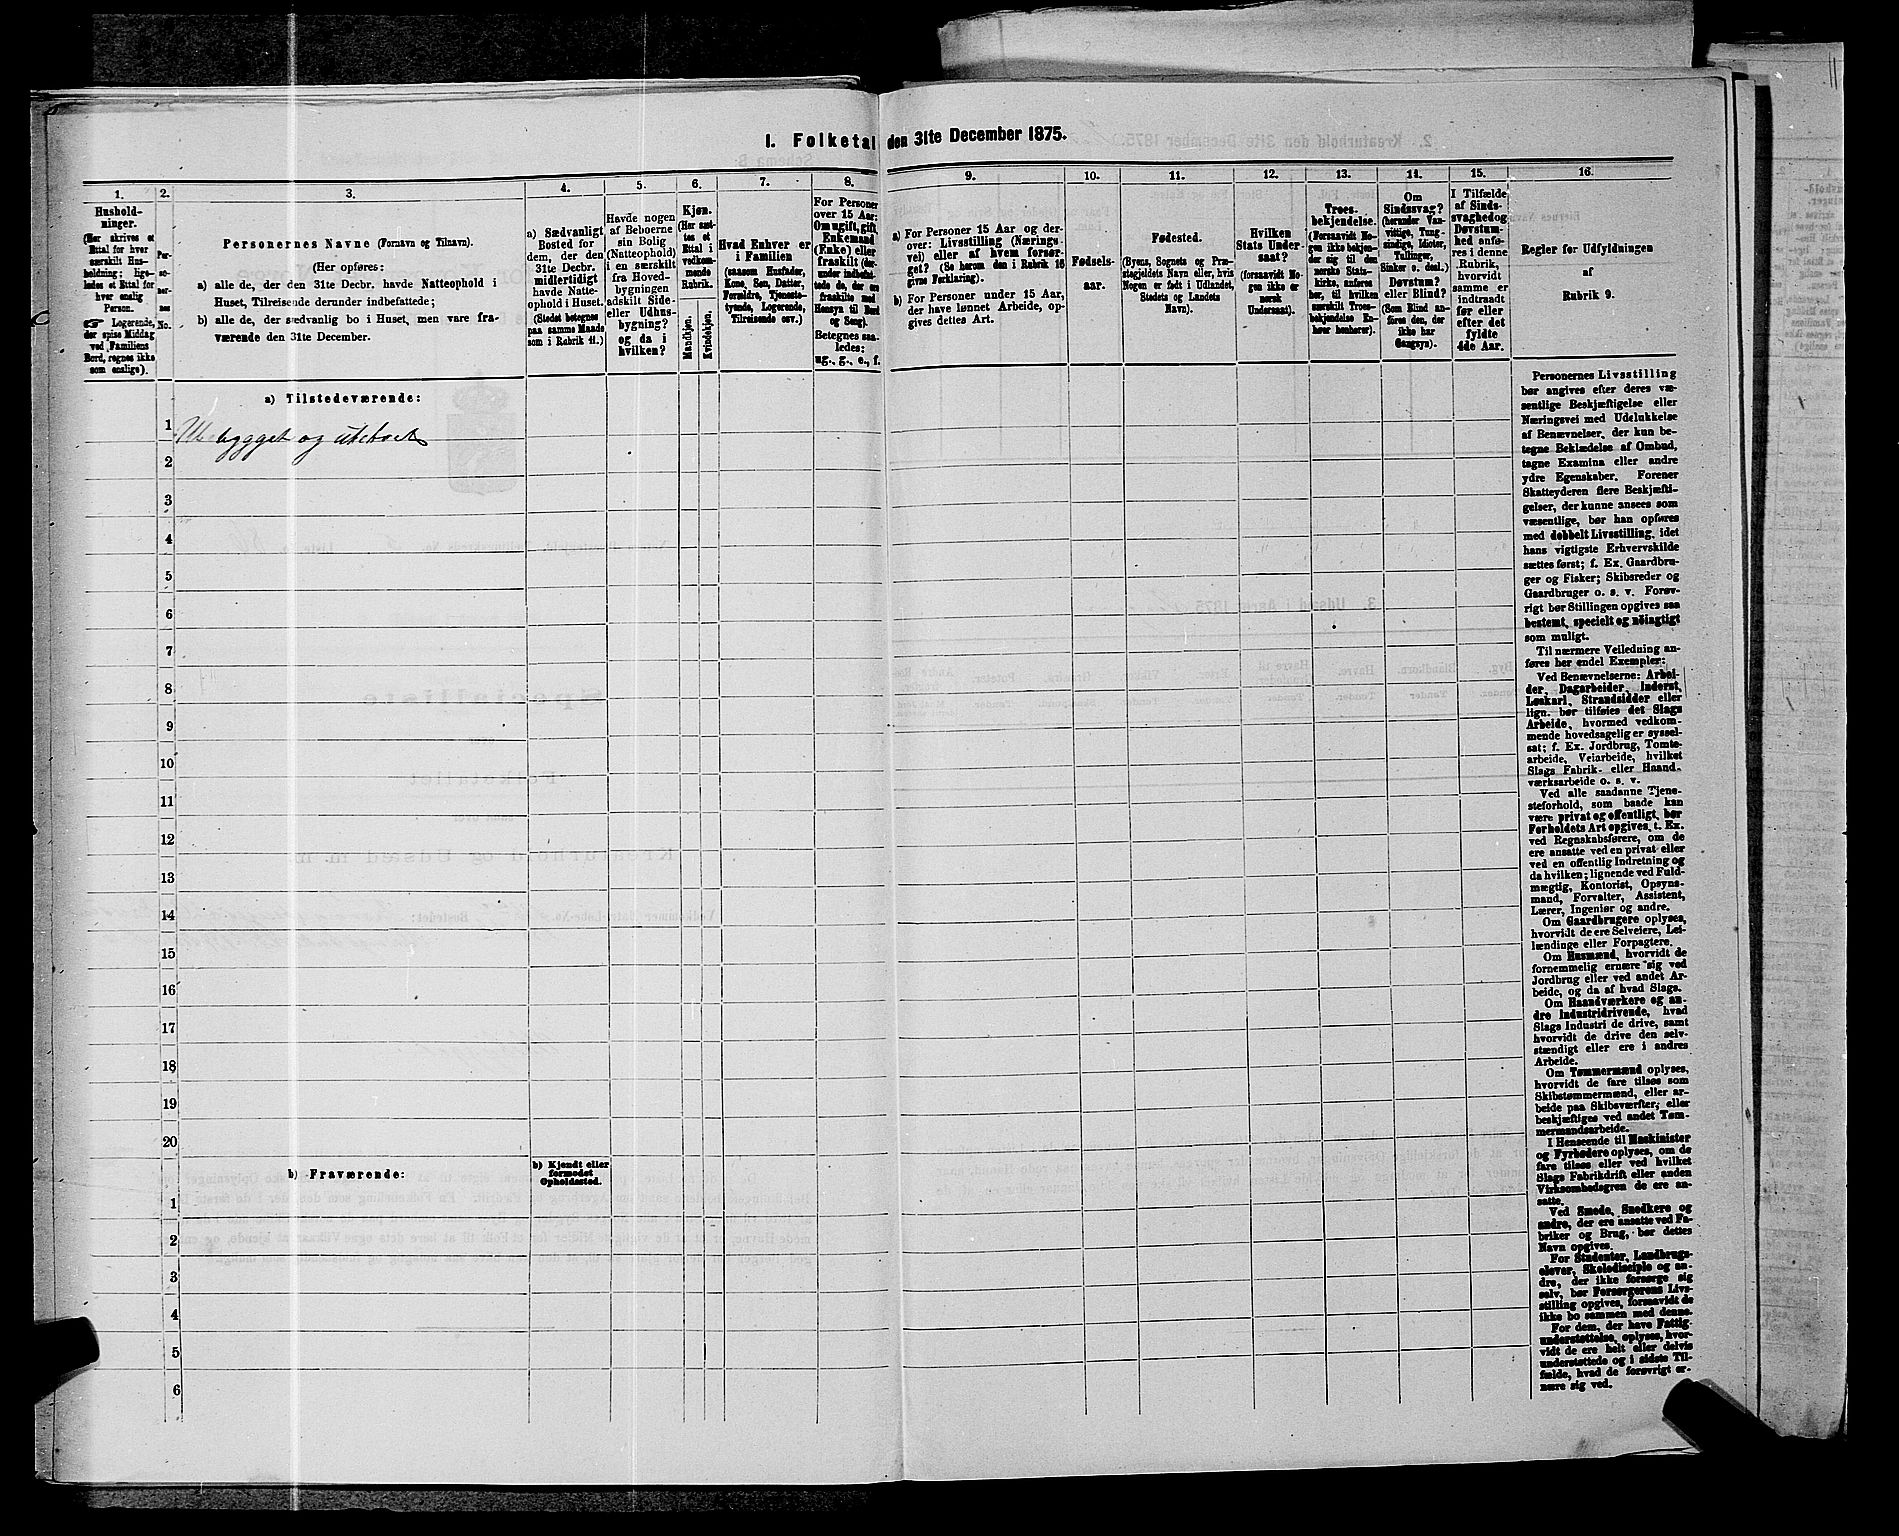 I. Folketal den 31te December 1875.
1.
Hushold-
ninger.
(Her skrives et
Ettal for hver
særskilt Hus-
holdning; lige-
ledes et Ettal for
hver enslig
Person.
☞ Logerende,
der spise Middag
ved Familiens
Bord, regnes ikke
som enslige).
2.
Per-
so-
ner-
nes
No.
3.
Personernes Navne (Fornavn og Tilnavn).
(Her opføres:
a) alle de, der den 31te Decbr. havde Natteophold i
Huset, Tilreisende derunder indbefattede;
b) alle de, der sædvanlig bo i Huset, men vare fra-
værende den 31te December.
4.
a) Sædvanligt
Bosted for
dem, der den
31te Decbr.
midlertidigt
havde Natte-
ophold i Huset.
(Stedet betegnes
paa samme Maade
som i Rubrik 11.)
5.
Havde nogen
af Beboerne
sin Bolig
(Natteophold)
i en særskilt
fra Hoved-
bygningen
adskilt Side-
eller Udhus-
bygning?
og da i
hvilken?
6.
Kjøn.
(Her sæt-
tes et
Ettal i
vedkom-
mende
Rubrik.
Mandkjøn.
Kvindekjøn.
7.
Hvad Enhver er
i Familien
(saasom Husfader,
Kone, Søn, Datter,
Forældre, Tjeneste-
tyende, Logerende,
Tilreisende osv.)
8.
For Personer
over 15 Aar:
Om ugift, gift,
Enkemand
(Enke) eller
fraskilt (der-
under indbefat-
tede de, der ere
fraskilte med
Hensyn til Bord
og Seng).
Betegnes saa-
ledes:
ug., g., e., f.
9.
a) For Personer 15 Aar og der-
over: Livsstilling (Nærings-
vei) eller af hvem forsør-
get? (Se herom den i Rubrik 16
givne Forklaring).
b) For Personer under 15 Aar,
der have lønnet Arbeide, op-
gives dettes Art.
10.
Fødsels-
aar.
11.
Fødested.
(Byens, Sognets og Præ-
stegjeldets Navn eller, hvis
Nogen er født i Udlandet,
Stedets og Landets
Navn).
12.
Hvilken
Stats Under-
saat?
(forsaavidt No-
gen ikke er
norsk
Undersaat).
13.
Troes-
bekjendelse.
(Forsaavidt No-
gen ikke bekjen-
der sig til den
norske Stats-
kirke, anføres
her, til hvilken
særskilt Troes-
bekjendelse En-
hver henhører).
14.
Om
Sindssvag?
(herunder Van-
vittige, Tung-
sindige, Idioter,
Tullinger,
Sinker o. desl.)
Døvstum?
eller Blind?
(Som Blind an-
føres den, der
ikke har
Gangsyn).
15.
I Tilfælde
af Sinds-
svaghedog
Døvstum-
hed anfø-
res i denne
Rubrik,
hvorvidt
samme er
indtraadt
før eller
efter det
fyldte
4de Aar.
16.
Regler for Udfyldningen
af
Rubrik 9.
a) Tilstedeværende:
1 Ubebygget og ubeboet
2
3
4
5
6
7
8
9
10
11
12
13
14
15
16
17
18
19
20
b) Fraværende:
b) Kjendt eller
formodet
Opholdssted.
1
2
3
4
5
6
Personernes Livsstilling
bør angives efter deres væ-
sentlige Beskjæftigelse eller
Næringsvei med Udelukkelse
af Benævnelser, der kun be-
tegne Beklædelse af Ombud,
tagne Examina eller andre
ydre Egenskaber. Forener
Skatteyderen flere Beskjæfti-
gelser, der kunne ansees som
væsentlige, bør han opføres
med dobbelt Livsstilling, idet
hans vigtigste Erhvervskilde
sættes først; f. Ex. Gaardbru-
ger og Fisker; Skibsreder og
Gaardbruger o. s. v. Forøv-
rigt bør Stillingen opgives saa
bestemt, specielt og nøiagtigt
som muligt.
Til nærmere Veiledning an-
føres her endel Exempler:
Ved Benævnelserne: Arbei-
der, Dagarbeider, Inderst,
Løskarl, Strandsidder eller
lign. bør tilføies det Slags
Arbeide, hvormed vedkom-
mende hovedsagelig er syssel-
sat; f. Ex. Jordbrug, Tomte-
arbeide, Veiarbeide, hvilket
Slags Fabrik- eller Haand-
værksarbeide o. s. v.
Ved alle saadanne Tjene-
steforhold, som baade kan
være privat og offentligt, bør
Forholdets Art opgives, t. Ex.
ved Regnskabsførere, om de
ere ansatte ved en privat eller
ved en offentlig Indretning og
da hvilken; lignende ved Fuld-
mægtig, Kontorist, Opsyns-
mand, Forvalter, Assistent,
Lærer, Ingeniør og andre.
Om Gaardbrugere oplyses,
hvorvidt de ere Selveiere, Lei-
lændinge eller Forpagtere.
Om Husmænd, hvorvidt de
fornemmelig ernære sig ved
Jordbrug eller ved andet Ar-
beide, og da af hvad Slags.
Om Haandværkere og an-
dre Industridrivende, hvad
Slags Industri de drive, samt
hvorvidt de drive den selv-
stændigt eller ere i andres
Arbeide.
Om Tømmermænd oplyses,
hvorvidt de fare tilsøs som
Skibstømmermænd, eller ar-
beide paa Skibsværfter, eller
beskjæftiges ved andet Tøm-
mermandsarbeide.
I Henseende til Maskinister
og Fyrbødere oplyses, om de
fare tilsøs eller ved hvilket
Slags Fabrikdrift eller anden
Virksomhedsgren de ere an-
satte.
Ved Smede, Snedkere og
andre, der ere ansatte ved Fa-
briker og Brug, bør dettes
Navn opgives.
For Studenter, Landbrugs-
elever, Skoledisciple og an-
dre, der ikke forsørge sig
selv, bør Forsørgerens Livs-
stilling opgives, forsaavidt de
ikke bo sammen med denne.
For dem, der have Fattig-
understøttelse, oplyses, hvor-
vidt de ere helt eller delvis
understøttede og i sidste Til-
fælde, hvad de forøvrigt er-
nære sig ved.